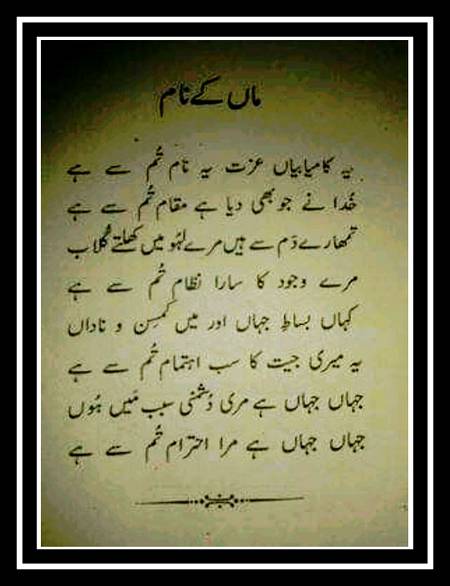 ماں کے نام
یہ کامیابیاں عزت یہ نام تُم سے ہے
خُدا نے جو بھی دیا ہے مقام تُم سے ہے
تمھارے دَم سے ہیں مرے لہُو میں کھلتے گُلاب
مرے وجود کا سارا نظام تُم سے ہے
کہاں بساطِ جہاں اور میں کمسِن و ناداں
یہ میری جیت کا سب اہتمام تُم سے ہے
جہاں جہاں ہے مری دُشمنی سبب مَیں ہُوں
جہاں جہاں ہے مرا احترام تُم سے ہے